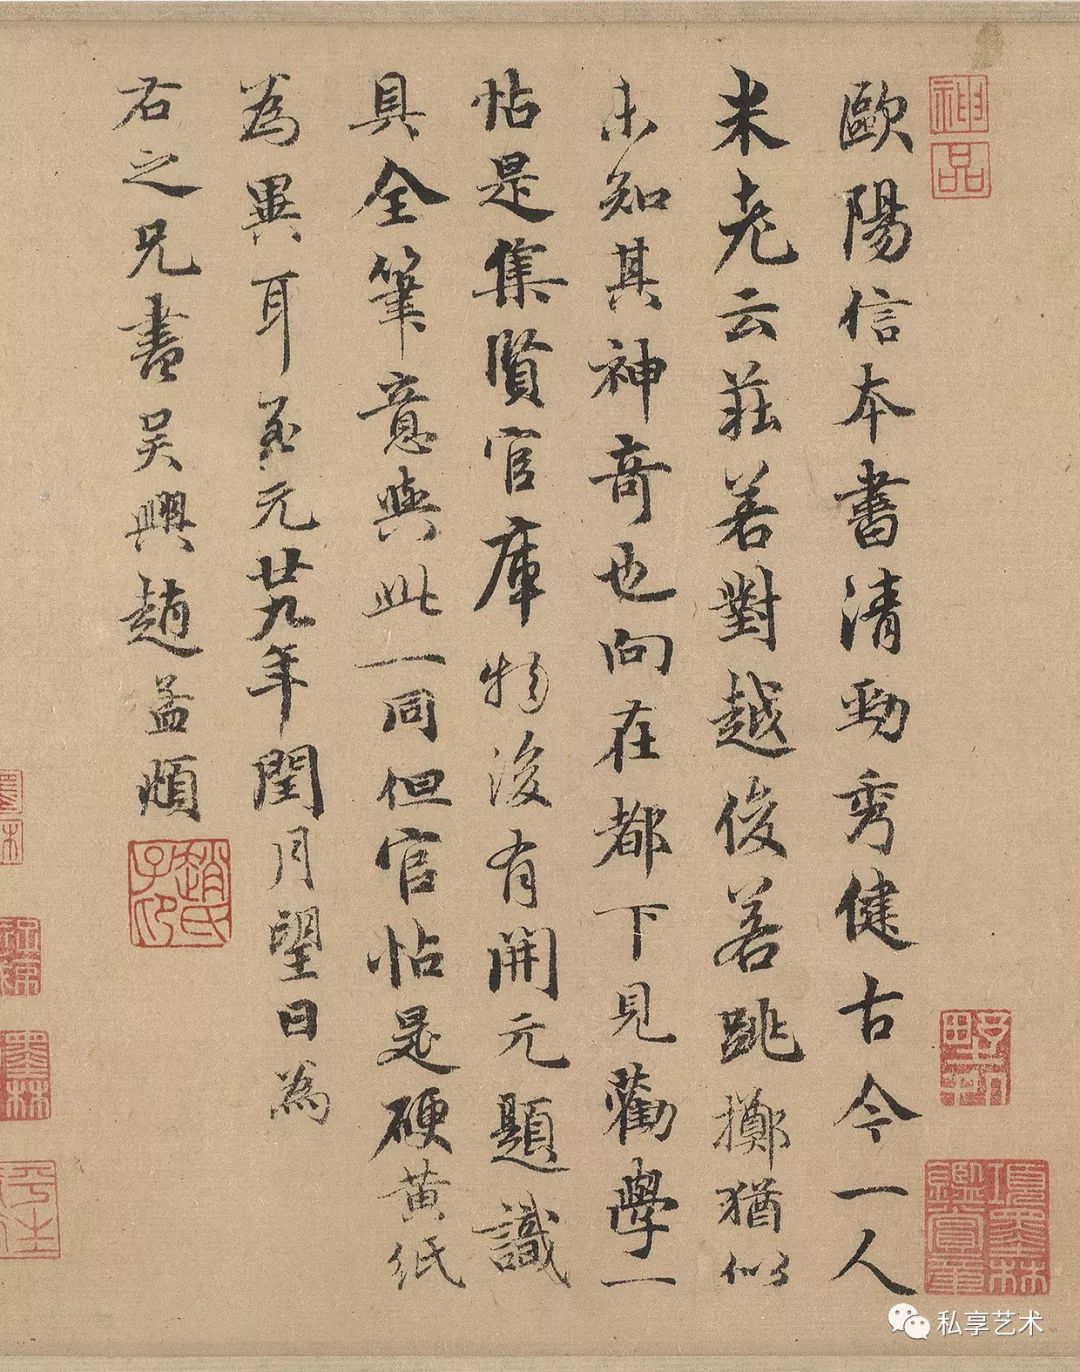 歐陽信本書清勁秀健古今一人
米老云莊若對越俊若跳擲猶似
未知其神奇也向在都下見勸學一
帖是集賢官庫物後有開元題識
具全筆意與此一同但官帖是硬黃紙
為異耳至元廿九年閏月望日為
右之兄書吳興趙孟頫
神品
趙氏子印
項墨林鑑賞章
墨林
私享艺术